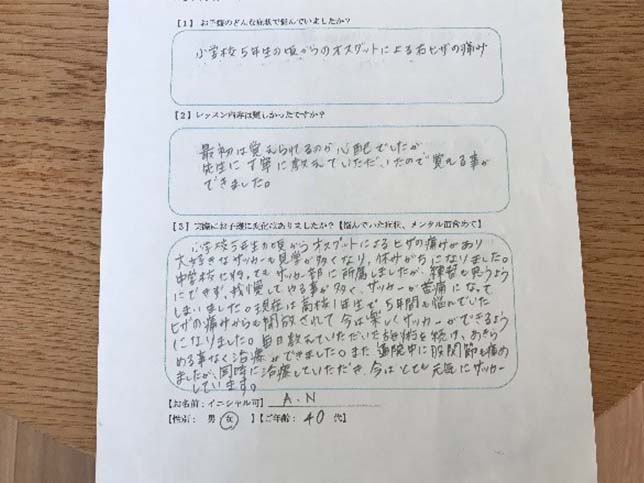 【1】お子様のどんな症状で悩んでいましたか？
小学校5年生の頃からのオスグットによる右ヒザの痛み
【2】レッスン内容は難しかったですか？
最初は覚えられるのか心配でしたが
先生に丁寧に教えていただいたので覚える事が
できました。
【3】実際にお子様に変化はありましたか？【悩んでいた症状、メンタル面含めて】
小学校5年生の頃からオスグットによるヒザの痛みがあり
大好きなサッカーも見学が多くなり、休みがちになりました。
中学校になってもサッカー部に所属しましたが、練習も思うよう
にできず、我慢してやる事が多く、サッカーが苦痛になって
しまいました。現在は高校1年生で5年間も悩んでいた
ヒザの痛みからも開放されて今は楽しくサッカーができるよう
になりました。毎日教えていただいた施術を続け、あきら
める事なく治療ができました。また通院中に股関節も痛め
ましたが、同時に治療していただき、今はとても元気にサッカー
しています。
【お名前：イニシャル可】 A.N
【性別： 男 女 】【ご年齢： 40 代】